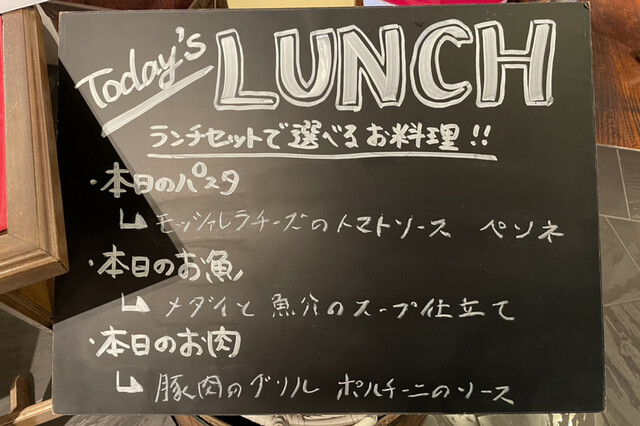 Today's LUNCH
ランチセットで選べるお料理!!
・本日のパスタ
モッツァレラチーズのトマトソース ペンネ
・本日のお魚
メダイと魚介のスープ仕立て
・本日のお肉
豚肉のグリル ポルチーニのソース